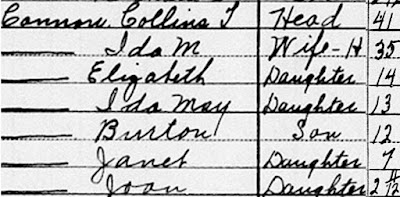 Connor Collins T Head 41
Ida M Wife-H 35
Elizabeth Daughter 14
Ida May Daughter 13
Burton Son 12
Janet Daughter 7
Joan Daughter 2 11/12